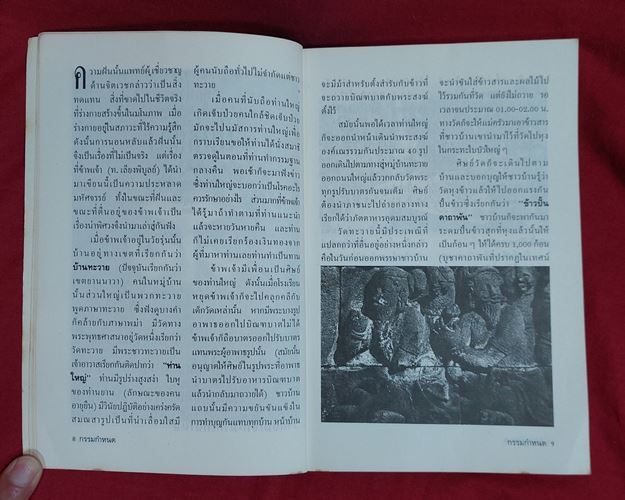 ความฝันนั้นแพทย์ผู้เชี่ยวชาญ
ด้านจิตเวชกล่าวว่าเป็นสิ่ง
ทดแทน สิ่งที่ขาดไปในชีวิตจริง
ที่ร่างกายสร้างขึ้นในมโนภาพ เมื่อ
ร่างกายอยู่ในสภาวะที่ไร้ความรู้สึก
ดังนั้นการนอนหลับแล้วฝันนั้น
จึงเป็นเรื่องที่ไม่เป็นจริง แต่เรื่อง
ที่ข้าพเจ้า (ท. เลียงพิบูลย์) ได้นำ
มาเขียนนี้เป็นความประหลาด
มหัศจรรย์ ทั้งในขณะที่ฝันและ
ขณะที่ตื่นอยู่ของข้าพเจ้าเป็น
เรื่องน่าพิศวงจึงนำมาเล่าสู่กันฟัง
เมื่อข้าพเจ้าอยู่ในวัยรุ่นนั้น
บ้านอยู่ทางเขตที่เรียกกันว่า
บ้านทะวาย (ปัจจุบันเรียกกันว่า
เขตยานนาวา) คนในหมู่บ้าน
นั้นส่วนใหญ่เป็นพวกทะวาย
พูดภาษาทะวาย ซึ่งฟังดูบางคำ
ก็คล้ายกับภาษาพม่า มีวัดทาง
พระพุทธศาสนาอยู่วัดหนึ่งเรียกว่า
วัดทะวาย มีพระชาวทะวายเป็น
เจ้าอาวาสเรียกกันติดปากว่า "ท่าน
ใหญ่" ท่านมีรูปร่างสูงสง่า ใบหู
ของท่านยาน (ลักษณะของคน
อายุยืน) มีวินัยปฏิบัติอย่างเคร่งครัด
สมณสารูปเป็นที่น่าเลื่อมใสมี
8 กรรมกำหนด
ผู้คนนับถือทั่วไปไม่จำกัดแต่ชาว
ทะวาย
เมื่อคนที่นับถือท่านใหญ่
เกิดเจ็บป่วยคนใกล้ชิดเจ็บป่วย
มักจะไปนมัสการท่านใหญ่เพื่อ
กราบเรียนขอให้ท่านได้นั่งสมาธิ
ตรวจดูในตอนที่ท่านทำกรรมฐาน
กลางคืน พอเช้าก็จะมาฟังข่าว
ซึ่งท่านใหญ่จะบอกว่าเป็นโรคอะไร
ควรรักษาอย่างไร ส่วนมากที่ข้าพเจ้า
ได้รู้มาถ้าทำตามที่ท่านแนะนำ
แล้วจะหายวันหายคืน และท่าน
ก็ไม่เคยเรียกร้องเงินทองจาก
ผู้ที่มาหาท่านเลยท่านทำเป็นทาน
ข้าพเจ้ามีเพื่อนเป็นศิษย์
ของท่านใหญ่ ดังนั้นเมื่อโรงเรียน
หยุดข้าพเจ้าก็จะไปคลุกคลีกับ
เด็กวัดเหล่านั้น หากมีพระบางรูป
อาพาธออกไปบิณฑบาตไม่ได้
ข้าพเจ้าก็ถือบาตรออกไปรับบาตร
แทนพระผู้อาพาธรูปนั้น (สมัยนั้น
อนุญาตให้ศิษย์ในรูปพระที่อาพาธ
นำบาตรไปรับอาหารบิณฑบาต
แล้วนำกลับมาถวายได้) ชาวบ้าน
แถบนั้นมีความขยันขันแข็งใน
การทำบุญกันแทบทุกบ้าน หน้าบ้าน
จะมีม้าสำหรับตั้งสำรับกับข้าวที่
จะถวายบิณฑบาตกับพระสงฆ์
ตั้งไว้
สมัยนั้นพอได้เวลาท่านใหญ่
ก็จะออกนำหน้าเดินนำพระสงฆ์
องค์เณรรวมกันประมาณ 40 รูป
ออกเดินไปตามทางสู่หมู่บ้านทะวาย
ออกถนนใหญ่แล้ววกกลับวัดพระ
ทุกรูปรับบาตรกันจนเต้ม ศิษย์
ต้องนำภาชนะไปถ่ายกลางทาง
เรียกได้ว่าภัตตาหารอุดมสมบูรณ์
วัดทะวายนี้มีประเพณีที่
แปลกกว่าที่อื่นอยู่อย่างหนึ่งกล่าว
คือในวันก่อนออกพรรษาชาวบ้าน
จะนำขันใส่ข้าวสารและผลไม้ไป
ไว้รวมกันที่วัด แต่ยังไม่ถวาย รอ
เวลาจนประมาณ 01.00-02.00 น.
ทางวัดก็จะให้แม่ครัวมาเอาข้าวสาร
ที่ชาวบ้านเขานำมาไว้ที่วัดไปหุง
ในกระทะใบบัวใหญ่ ๆ
ศิษย์วัดก็จะเดินไปตาม
บ้านและบอกบุญให้ชาวบ้านรู้ว่า
วัดหุงข้าวแล้วให้ไปออกแรงกัน
ปั้นข้าวซึ่งเรียกกันว่า "ข้าวปั้น
คาถาพัน" ชาวบ้านก็จะพากันมา
ระดมปั้นข้าวสุกที่หุงแล้วนั้นให้
เป็นก้อน ๆ ให้ได้ครบ 1,000 ก้อน
(บูชาคาถาพันที่ปรากฏในเทศน์
กรรมกำหนด 9